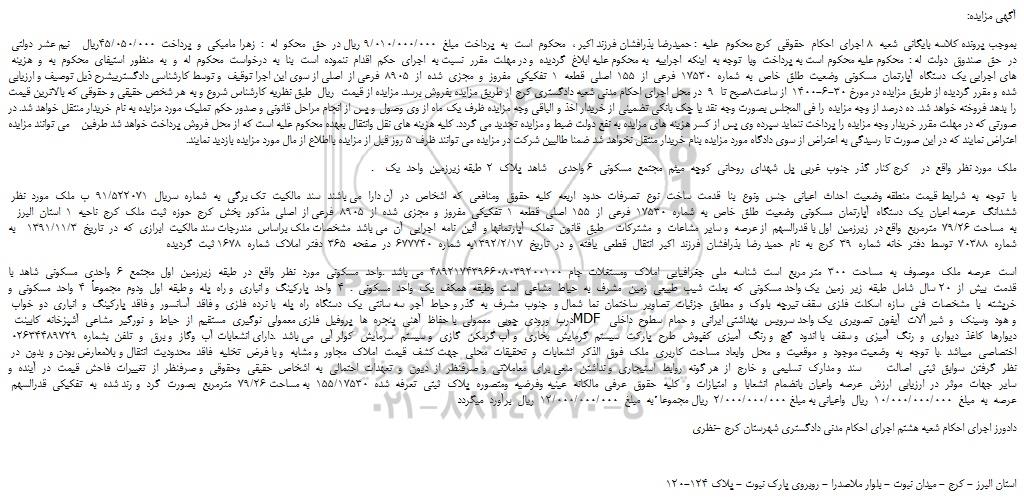 آگهی مزایده:
بموجب پرونده کلاسه بایگانی شعبه ۸ اجرای احکام حقوقی کرج محکوم علیه : حمیدرضا بذرافشان فرزند اکبر ، محکوم است به پرداخت مبلغ ۹/۰۱۰/۰۰۰/۰۰۰ ریال در حق محکو له : زهرا مامیکی و پرداخت ۴۵/۰۵۰/۰۰۰ریال نیم عشر دولتی
در حق صندوق دولت له : محکوم علیه محکوم است به پرداخت وبا توجه به اینکه اجراییه به محکوم علیه ابلاغ گردیده و در مهلت مقرر نسبت به اجرای حکم اقدام ننموده است بنا به درخواست محکوم له و به منظور استیفای محکوم به و هزینه
های اجرایی یک دستگاه آپارتمان مسکونی وضعیت طلق خاص به شماره ۱۷۵۳۰ فرعی از ۱۵۵ اصلی قطعه ۱ تفکیکی مفروز و مجزی شده از ۸۹۰۵ فرعی از اصلی از سوی این اجرا توقیف و توسط کارشناسی دادگستریبشرح ذیل توصیف و ارزیابی
شده و مقرر گردیده از طریق مزایده در مورخ ۳۰-۶-۱۴۰۰۰ از ساعت۸صبح تا ۹ در محل اجرای احکام مدنی شعبه دادگستری کرج از طریق مزایده بفروش برسد. مزایده از قیمت ریال طبق نظریه کارشناس شروع و به هر شخص حقیقی و حقوقی که بالاترین قیمت
را بدهد فروخته خواهد شد. ده درصد از وجه مزایده را فی المجلس بصورت وجه نقد یا چک بانکی تضمینی از خریدار اخذ و الباقی وجه مزایده ظرف یک ماه از وی وصول و پس از انجام مراحل قانونی و صدور حکم تملیک مورد مزایده به نام خریدار منتقل خواهد شد. در
صورتی که در مهلت مقرر خریدار وجه مزایده را پرداخت ننماید سپرده وی پس از کسر هزینه های مزایده به نفع دولت ضبط و مزایده تجدید می گردد. کلیه هزینه های نقل وانتقال بعهده محکوم علیه است که از محل فروش پرداخت خواهد شد طرفین می توانند مزایده
اعتراض نمایند که در این صورت تا رسیدگی به اعتراض از سوی دادگاه مورد مزایده بنام خریدار منتقل نخواهد شد ضمنا طالبین شرکت در مزایده می توانند ظرف ۵ روز قبل از مزایده بااطلاع از مال مورد مزایده بازدید نمایند.
ملک مورد نظر واقع در کرج کنار گذر جنوب غربی پل شهدای روحانی کوچه میثم مجتمع مسکونی ۶ واحدی شاهد پلاک ۲ طبقه زیرزمین واحد یک .
با توجه به شرایط قیمت منطقه وضعیت احداث اعیانی جنس ونوع بنا قدمت ساخت نوع تصرفات حدود اربعه کلیه حقوق ومنافعی که اشخاص در آن دارا می باشند سند مالکیت تک برگی به شماره سریال ۹۱/۵۲۲۰۷۱ ب ملک مورد نظر
ششدانگ عرصه اعیان یک دستگاه آپارتمان مسکونی وضعیت طلق خاص به شماره ۱۷۵۳۰ فرعی از ۱۵۵ اصلی قطعه ۱ تفکیکی مفروز و مجزی شده از ۸۹۰۵ فرعی از اصلی مذکور بخش کرج حوزه ثبت ملک کرج ناحیه ۱ استان البرز
به مساحت ۷۹/۲۶ مترمربع واقع در زیرزمین اول با قدرالسهم از عرصه و سایر مشاعات و مشترکات طبق قانون تملک آپارتمانها و آئین نامه اجرایی آن می باشد مشخصات ملک براساس مندرجات سند مالکیت ابرازی که در تاریخ ۱۳۹۱/۱۱/۳ به
شماره ۷۰۳۸۸ توسط دفتر خانه شماره ۳۹ کرج به نام حمید رضا بذرافشان فرزند اکبر انتقال قطعی یافته و در تاریخ ۱۳۹۲/۲/۱۷به شماره ۶۷۷۷۴۰ در صفحه ۳۶۵ دفتر املاک شماره ۱۶۷۸ ثبت گردیده
است عرصه ملک موصوف به مساحت ۳۰۰ متر مربع است شناسه ملی جغرافیایی املاک ومستغلات جام ۴۸۹۲۱۷۴۳۹۶۶۰۸۰۳۹۲۰۰۱۰۰ می باشد .واحد مسکونی مورد نظر واقع در طبقه زیرزمین اول مجتمع ۶ واحدی مسکونی شاهد با
قدمت بیش از ۲۰ سال شامل طبقه زیر زمین یک واحد مسکونی که بعلت شیب طبیعی زمین مشرف به حیاط مشاعی است وطبقه همکف یک واحد مسکونی . ۴ واحد پارکینگ و انباری و راه پله و طبقه اول ودوم مجموعاً ۴ واحد مسکونی و
خرپشته با مشخصات فنی سازه اسکلت فلزی سقف تیرچه بلوک و مطابق جزئیات تصاویر ساختمان نما شمال و جنوب مشرف به گذر و حیاط آجر سه سانتی یک دستگاه راه پله با نرده فلزی و فاقد آسانسور و فاقد پارکینگ و انباری دو خواب
و هود وسینک و شیر آلات آیفون تصویری یک واحد سرویس بهداشتی ایرانی و حمام سطوح داخلی MDFدرب ورودی چوبی معمولی با حفاظ آهنی پنجره ها پروفیل فلزی معمولی نوگیری مستقیم از حیاط و نورگیر مشاعی آشپزخانه کابینت
دیوارها کاغذ دیواری و رنگ آمیزی و سقف با اندود گچ و رنگ آمیزی کفپوش طرح پارکت سیستم گرمایش بخاری و آب گرمکن گازی و سیستم سرمایش کولر آبی می باشد .دارای انشعابات آب وگاز و برق و تلفن بشماره ۰۲۶۳۴۴۸۹۷۲۹
اختصاصی میباشد .با توجه به وضعیت موجود و موقعیت و محل وابعاد مساحت کاربری ملک فوق الذکر انشعابات و تحقیقات محلی جهت کشف قیمت املاک مجاور و مشابه و با فرض تخلیه فاقد محدودیت انتقال و بلامعارض بودن و بدون در
نظر گرفتن سوابق ثبتی اصالت سند و مدارک تسلیمی و خارج از هر گونه روابط استیجاری و نداشتن منعی برای معاملاتی و صرفنظر از دیون و تعهدات احتمالی به اشخاص حقیقی وحقوقی و صرفنظر از تغییرات فاحش قیمت در آینده و
سایر جهات موثر در ارزیابی ارزش عرصه واعیان بانضمام انشعابا و امتیازات و کلیه حقوق عرفی مالکانه عینیه وفرضیه ومتصوره پلاک ثبتی تعرفه شده ۱۵۵/۱۷۵۳۰ به مساحت ۷۹/۲۶ مترمربع بصورت گرد و رند شده به تفکیکی قدرالسهم
عرصه به مبلغ ۱۰/۰۰۰/۰۰۰/۰۰۰ ریال واعیانی به مبلغ ۲/۰۰۰/۰۰۰/۰۰۰ ریال مجموعا"به مبلغ ۱۲/۰۰۰/۰۰۰/۰۰۰ ریال برآورد میگردد
دادورز اجرای احکام شعبه هشتم اجرای احکام مدنی دادگستری شهرستان کرج –نظری
استان البرز - کرج - میدان نبوت - بلوار ملاصدرا - روبروی پارک نبوت - پلاک ۱۲۴-۱۲۰
۰۲۱-۸۸۳۴۹۶۷۰-۵